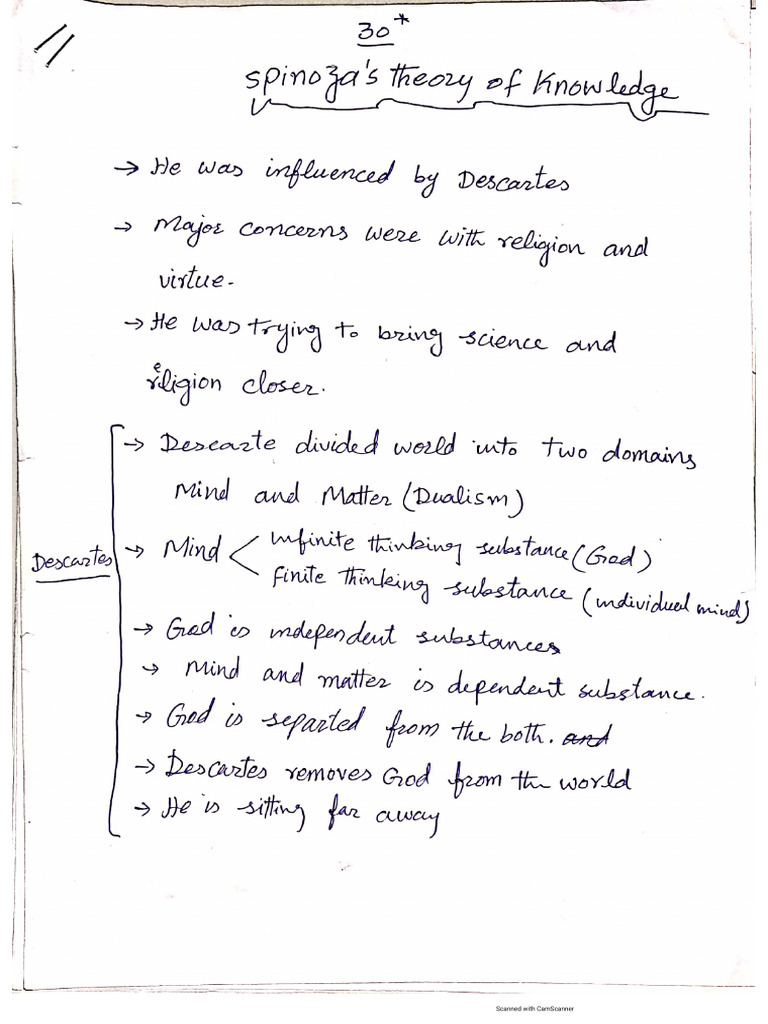 30*
Spinoza's theory of Knowledge
→ He was influenced by Descartes
→ Major concerns were with religion and
virtue.
→ He was trying to bring science and
religion closer.
→ Descarte divided world into two domains
Mind and Matter (Dualism)
Descartes
→ Mind < infinite thinking substance (God)
finite thinking substance (individual mind)
→ God is independent substances
→ Mind and matter is dependent substance.
→ God is separted from the both. and
→ Descartes removes God from the world
→ He is sitting far away
Scanned with CamScanner